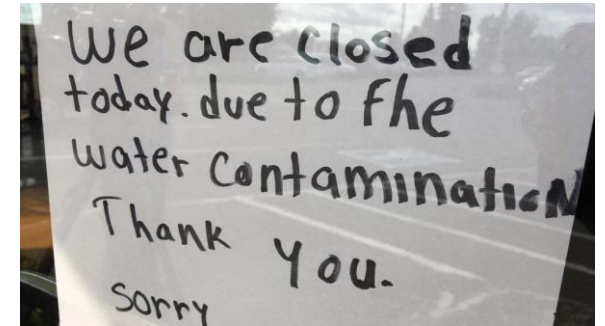 We are closed
today. due to fhe
water Contamination
Thank you.
Sorry